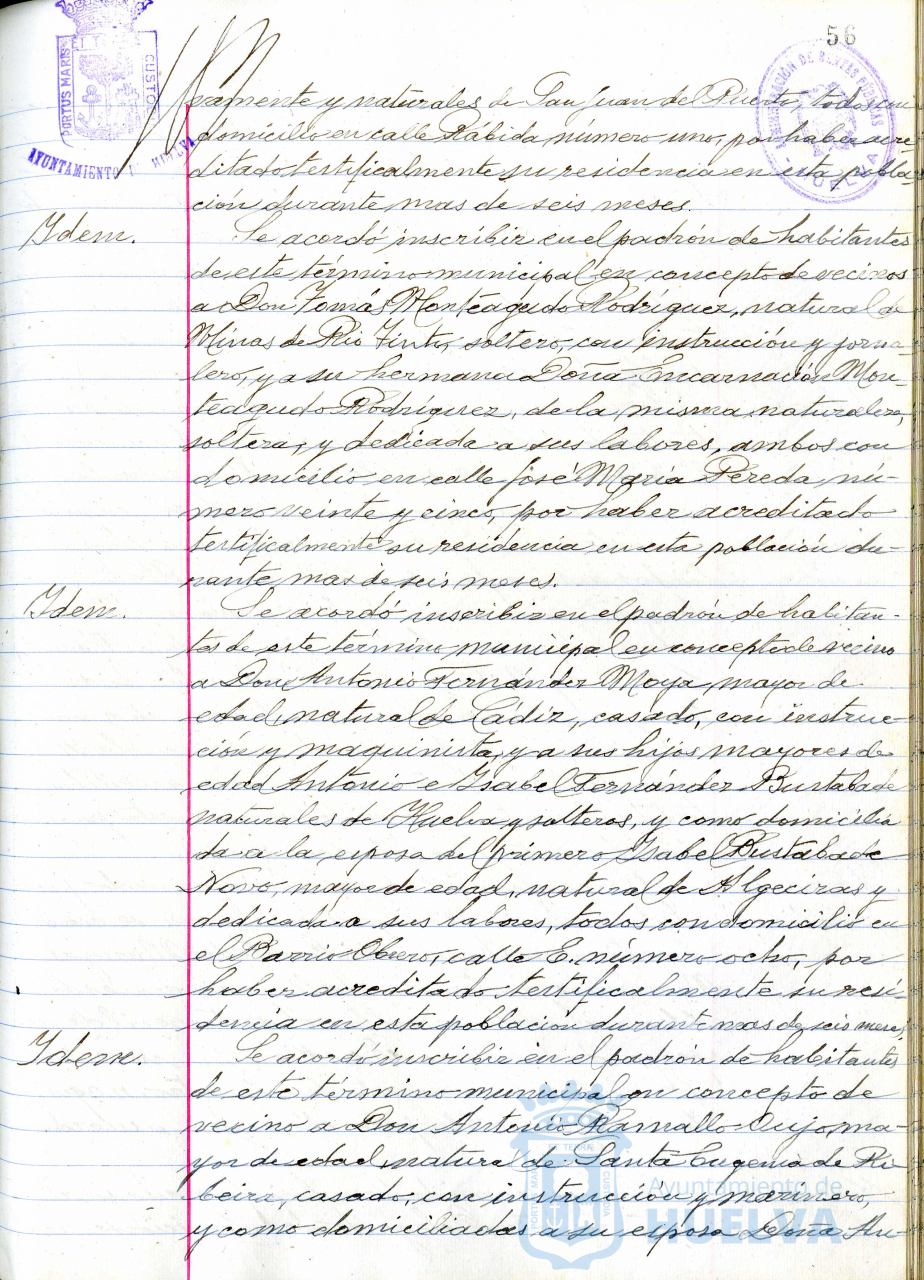 56
PORTUS MARIS ET TERRÆ CUSTODIA
AYUNTAMIENTO HUELVA
ADMINISTRACION DE RENTAS PUBLICAS
HUELVA
eramente y naturales de San Juan del Puerto, todos con
domicilio en calle Rábida, número uno, por haber acre
ditado testificalmente su residencia en esta pobla-
ción durante mas de seis meses.
Idem.
Se acordó inscribir en el padrón de habitantes
de este término municipal en concepto de vecinos
a Don Tomás Monteagudo Rodríguez, natural de
Minas de Rio Tinto, soltero, con instrucción y jorna-
lero, y a su hermana Doña Encarnación Mon-
teagudo Rodríguez, de la misma naturaleza,
soltera, y dedicada a sus labores, ambos con
domicilio en calle José María Pereda, nú-
mero veinte y cinco, por haber acreditado
testificalmente su residencia en esta población du-
rante mas de seis meses.
Idem.
Se acordó inscribir en el padrón de habitan-
tes de este término municipal en concepto de vecino
a Don Antonio Fernández Moya, mayor de
edad, natural de Cádiz, casado, con instruc-
ción y maquinista, y a sus hijos mayores de
edad Antonio e Isabel Fernández Bustabade
naturales de Huelva y solteros, y como domicilia
da a la esposa del primero Isabel Bustabade
Novo, mayor de edad, natural de Algeciras y
dedicada a sus labores, todos con domicilio en
el Barrio Obrero, calle E. número ocho, por
haber acreditado testificalmente su resi-
dencia en esta poblacion durante mas de seis meses.
Idem.
Se acordó inscribir en el padrón de habitantes
de este término municipal en concepto de
vecino a Don Antonio Ramallo Oujo, ma-
yor de edad, natural de Santa Eugenia de Ri-
beira, casado, con instrucción y marinero,
y como domiciliadas a su esposa Doña
Ayuntamiento de
HUELVA